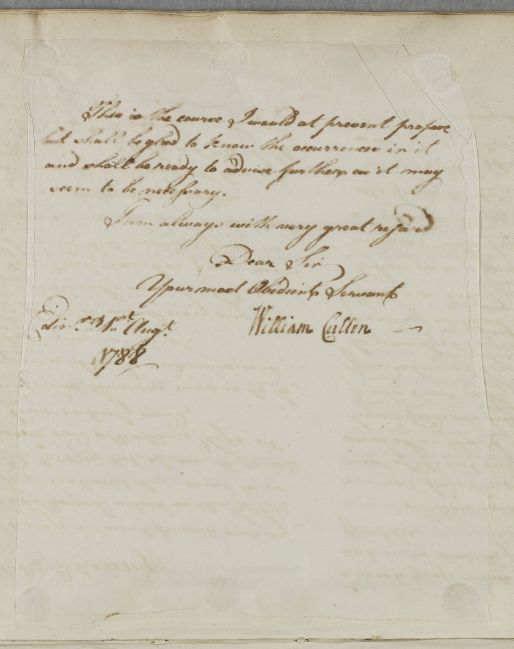 This is the course I would at present propose
but shall be glad to know the occurrences in it
and shall be ready to advise further as it may
seem to be necessary.
I am always with very great regard
Dear Sir
Your most Obedient Servant
William Cullen
31st. Augt.
1788